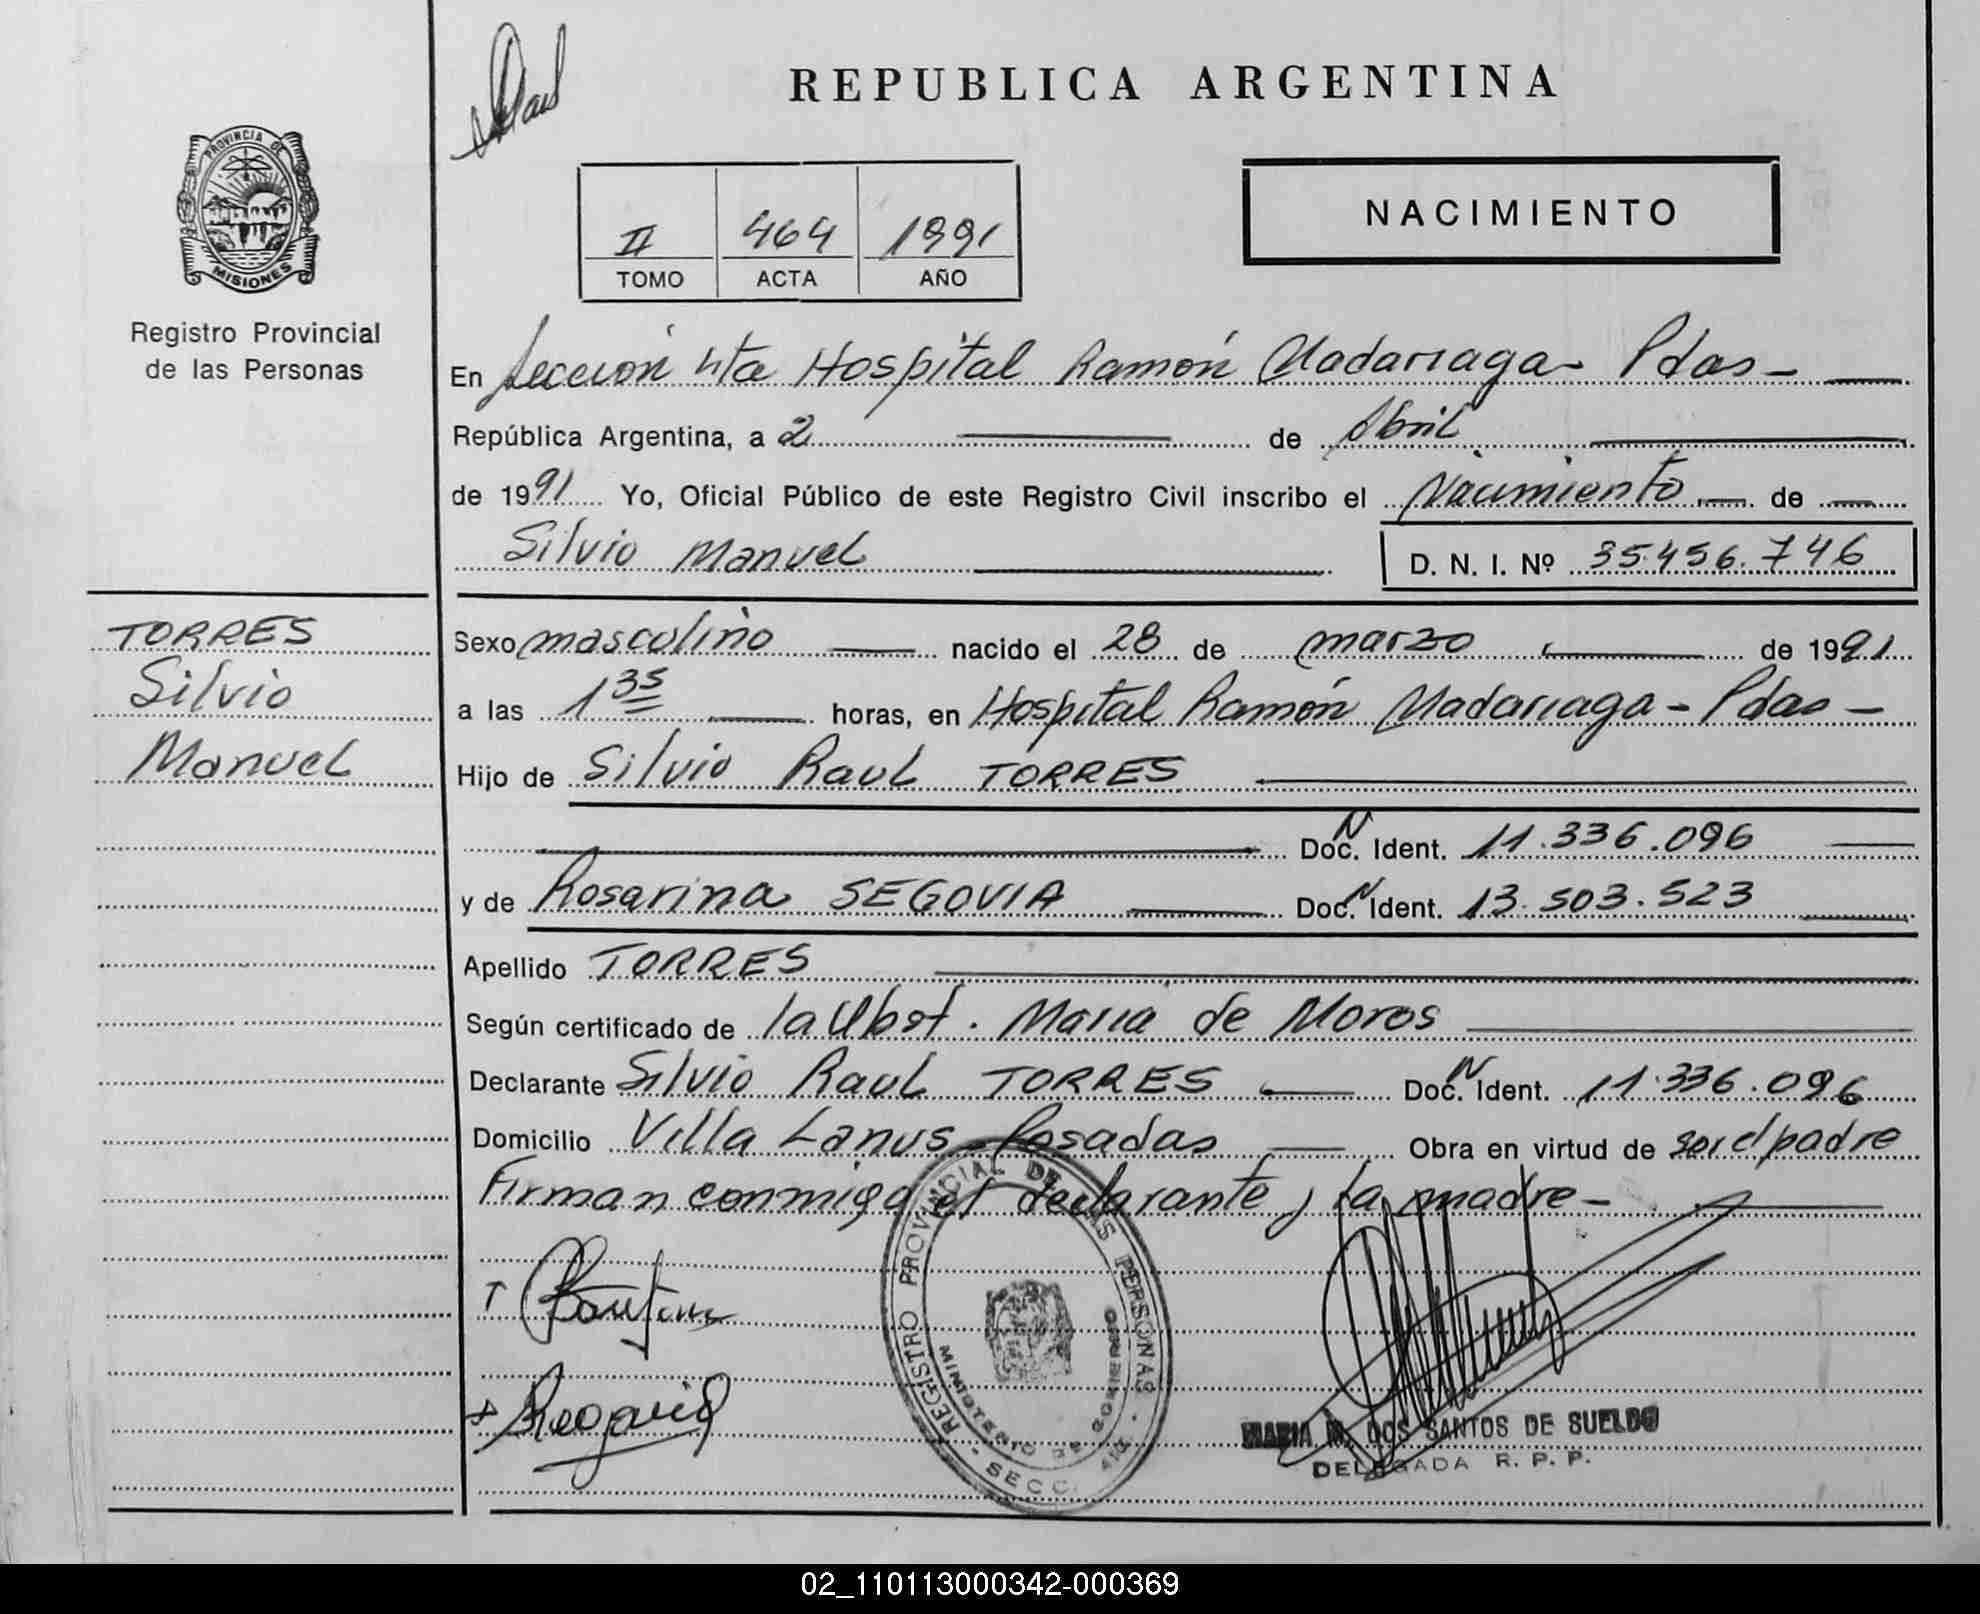 REPUBLICA ARGENTINA
PROVINCIA DE
MISIONES
Registro Provincial
de las Personas
II 464 1991
TOMO ACTA AÑO
NACIMIENTO
En Sección 4ta Hospital Ramón Madariaga - Pdas -
República Argentina, a 2 de Abril
de 1991 Yo, Oficial Público de este Registro Civil inscribo el Nacimiento de
Silvio Manuel D. N. I. Nº 35.456.746
TORRES
Silvio
Manuel
Sexo masculino nacido el 28 de marzo de 1991
a las 1 35 horas, en Hospital Ramón Madariaga - Pdas -
Hijo de Silvio Raul TORRES
Doc. N Ident. 11.336.096
y de Rosarina SEGOVIA Doc. N Ident. 13.503.523
Apellido TORRES
Según certificado de la Obst. Maria de Moros
Declarante Silvio Raul TORRES Doc. N Ident. 11.336.096
Domicilio Villa Lanus - Posadas Obra en virtud de ser el padre
Firman conmigo el declarante y la madre -
REGISTRO PROVINCIAL DE LAS PERSONAS
MINISTERIO DE GOBIERNO
SECC. 4ta
MARIA M. DOS SANTOS DE SUELDO
DELEGADA R. P. P.
02_110113000342-000369